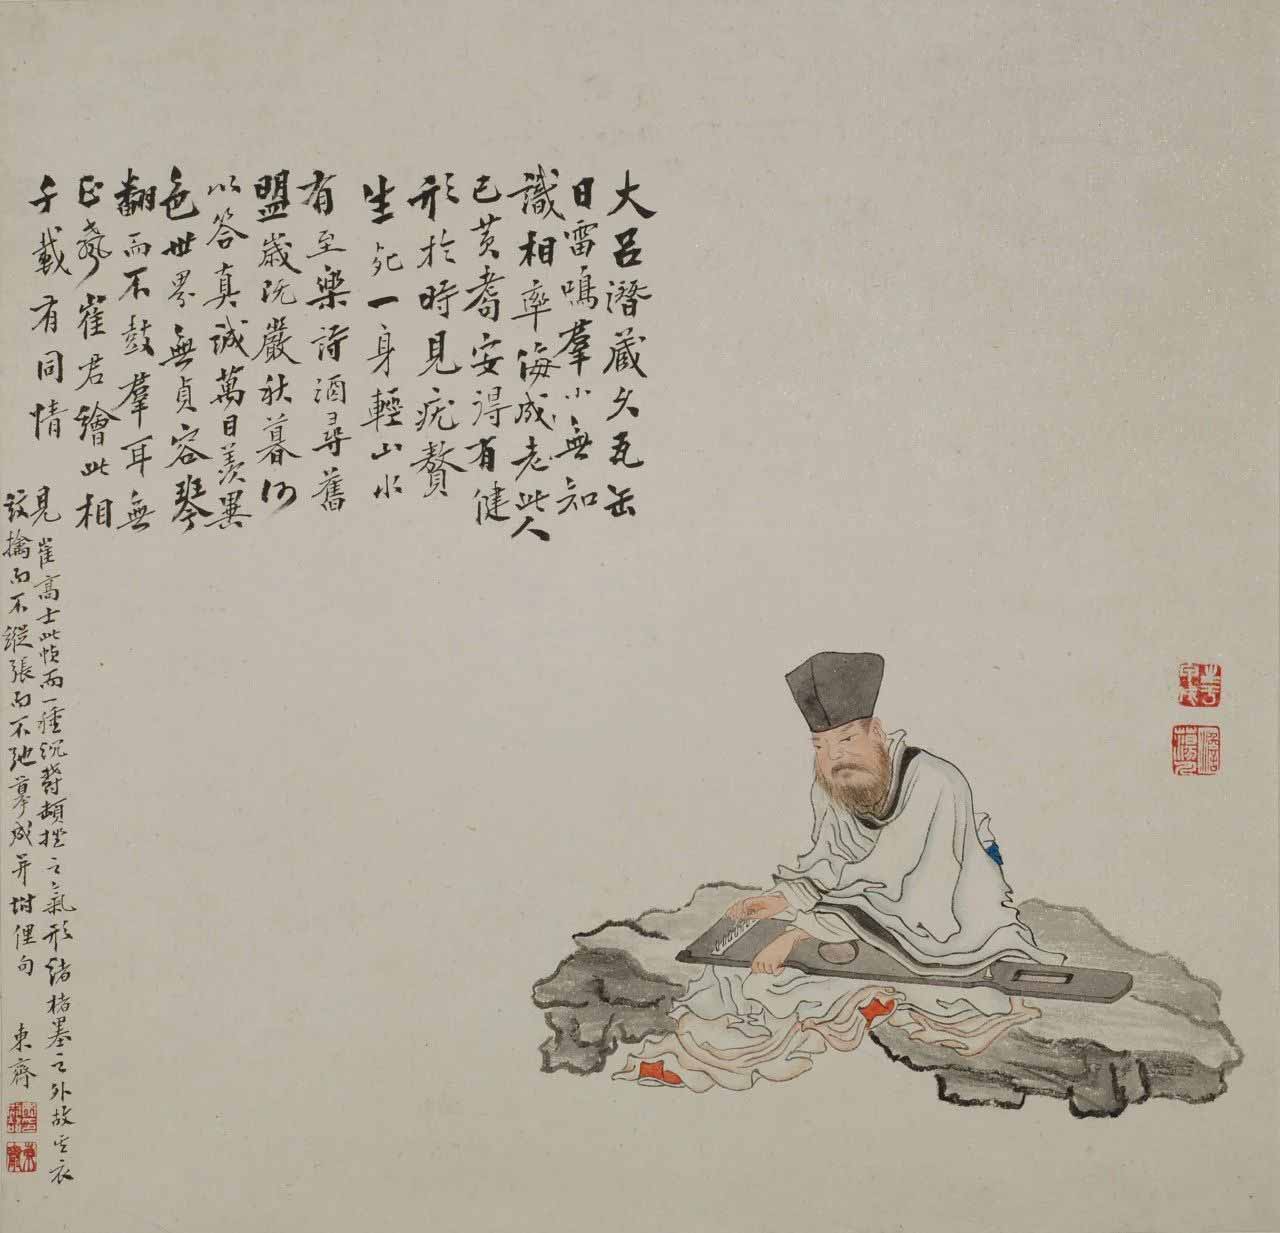 大呂潛藏久瓦缶
日雷鳴羣小無知
識相率侮成老此人
已黄耇安得有健
形於時見疣贅
生死一身輕山水
有至樂詩酒尋舊
盟歲既嚴秋暮何
以答真誠萬目羨異
色世界無貞容琴
翻而不鼓羣耳無
正聲崔君繪此相
千載有同情
見崔高士此幀而一種沉鬱頓挫之氣形諸楮墨之外故其衣
紋擒而不縱張而不弛摹成并坿俚句 東齋
東齋